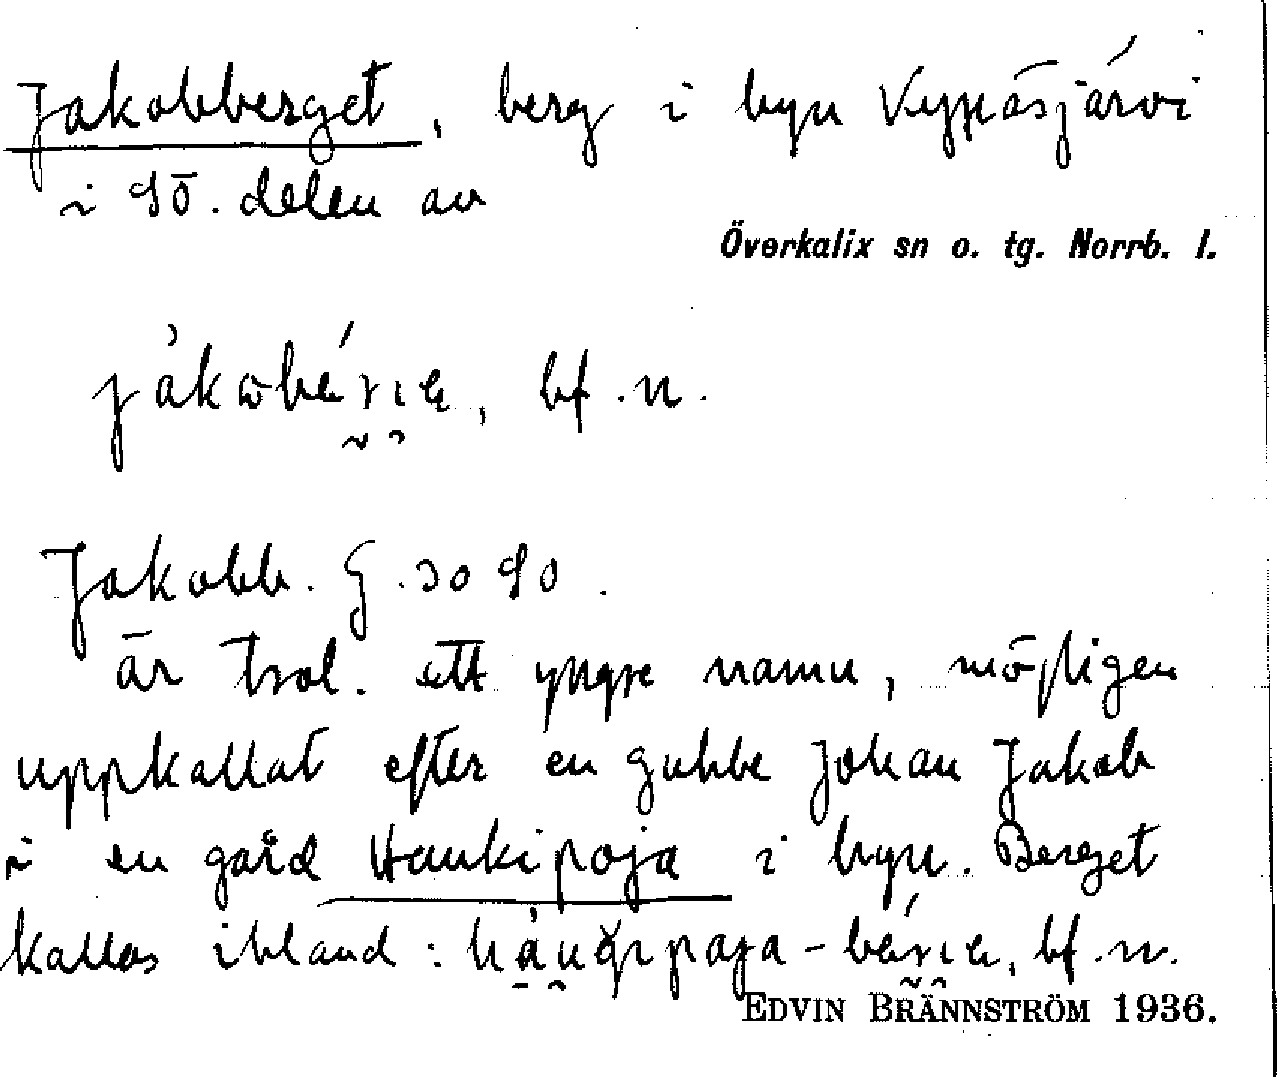 Jakobberget, berg i byn Vyppäsjärvi
i SÖ. delen av
Överkalix sn o. tg. Norrb. l.
bf. n.
Jakobb. G. 30 SO.
är trol. ett yngre namn, möjligen
uppkallat efter en gubbe Johan Jakob
i en gård Haukipoja i byn. Berget
kallas ibland: bf. n.
EDVIN BRÄNNSTRÖM 1936.